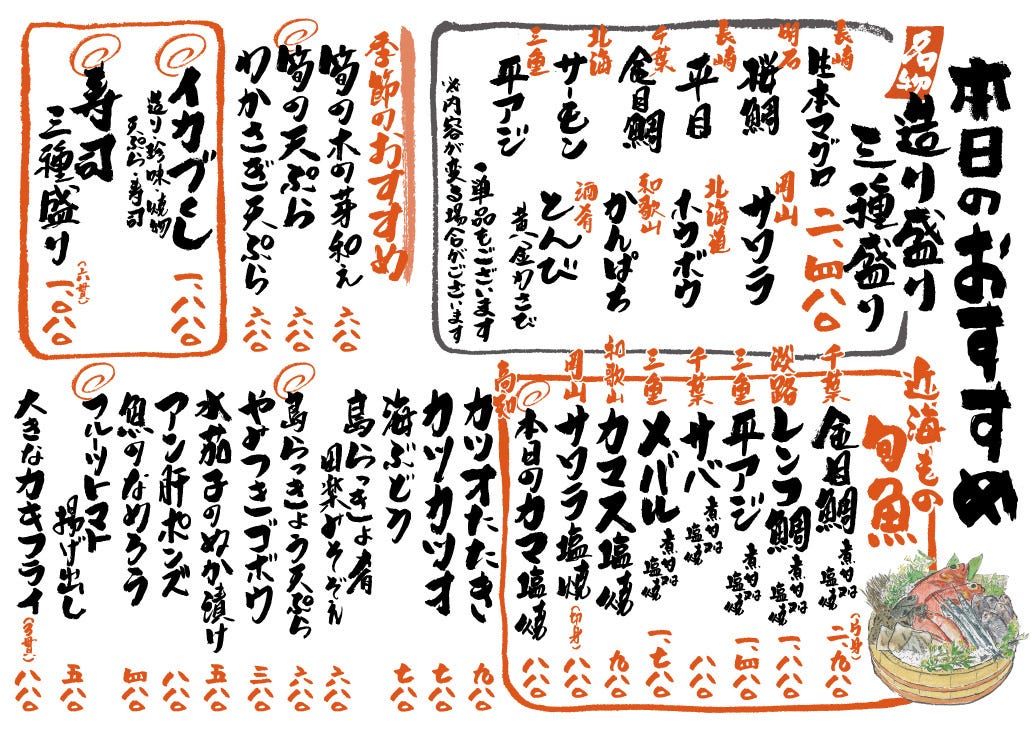 本日のおすすめ
名物
造り盛り
三種盛り
二、四八〇
長崎
生本マグロ
明石
桜鯛
岡山
サワラ
長崎
平目
北海道
ホウボウ
千葉
金目鯛
和歌山
かんぱち
北海
サーモン
酒肴
とんび
三重
平アジ
黄金わさび
・単品もございます
※内容が変る場合がございます
近海もの
旬魚
千葉
金目鯛
煮付又は
塩焼
二、九八〇
淡路
レンコ鯛
煮付又は
塩焼
一、八八〇
三重
平アジ
煮付又は
塩焼
一、四八〇
千葉
サバ
煮付又は
塩焼
八八〇
三重
メバル
煮付又は
塩焼
一、七八〇
和歌山
カマス塩焼
九八〇
岡山
サワラ塩焼
(切身)
八八〇
本日のカマ塩焼
八八〇
季節のおすすめ
筍の木の芽和え
六八〇
筍の天ぷら
六八〇
わかさぎ天ぷら
六八〇
イカづくし
造り・珍味・焼物
天ぷら・寿司
一、八八〇
寿司
三種盛り
(六貫)
一、〇八〇
高知
カツオたたき
九八〇
カツカツオ
七八〇
海ぶどう
七八〇
島らっきょ肴
田楽みそぞえ
六八〇
島らっきょう天ぷら
六八〇
やみつきゴボウ
三八〇
水茄子のぬか漬け
五八〇
アン肝ポンズ
八八〇
魚のなめろう
四八〇
フルーツトマト
揚げ出し
五八〇
大きなカキフライ
八八〇